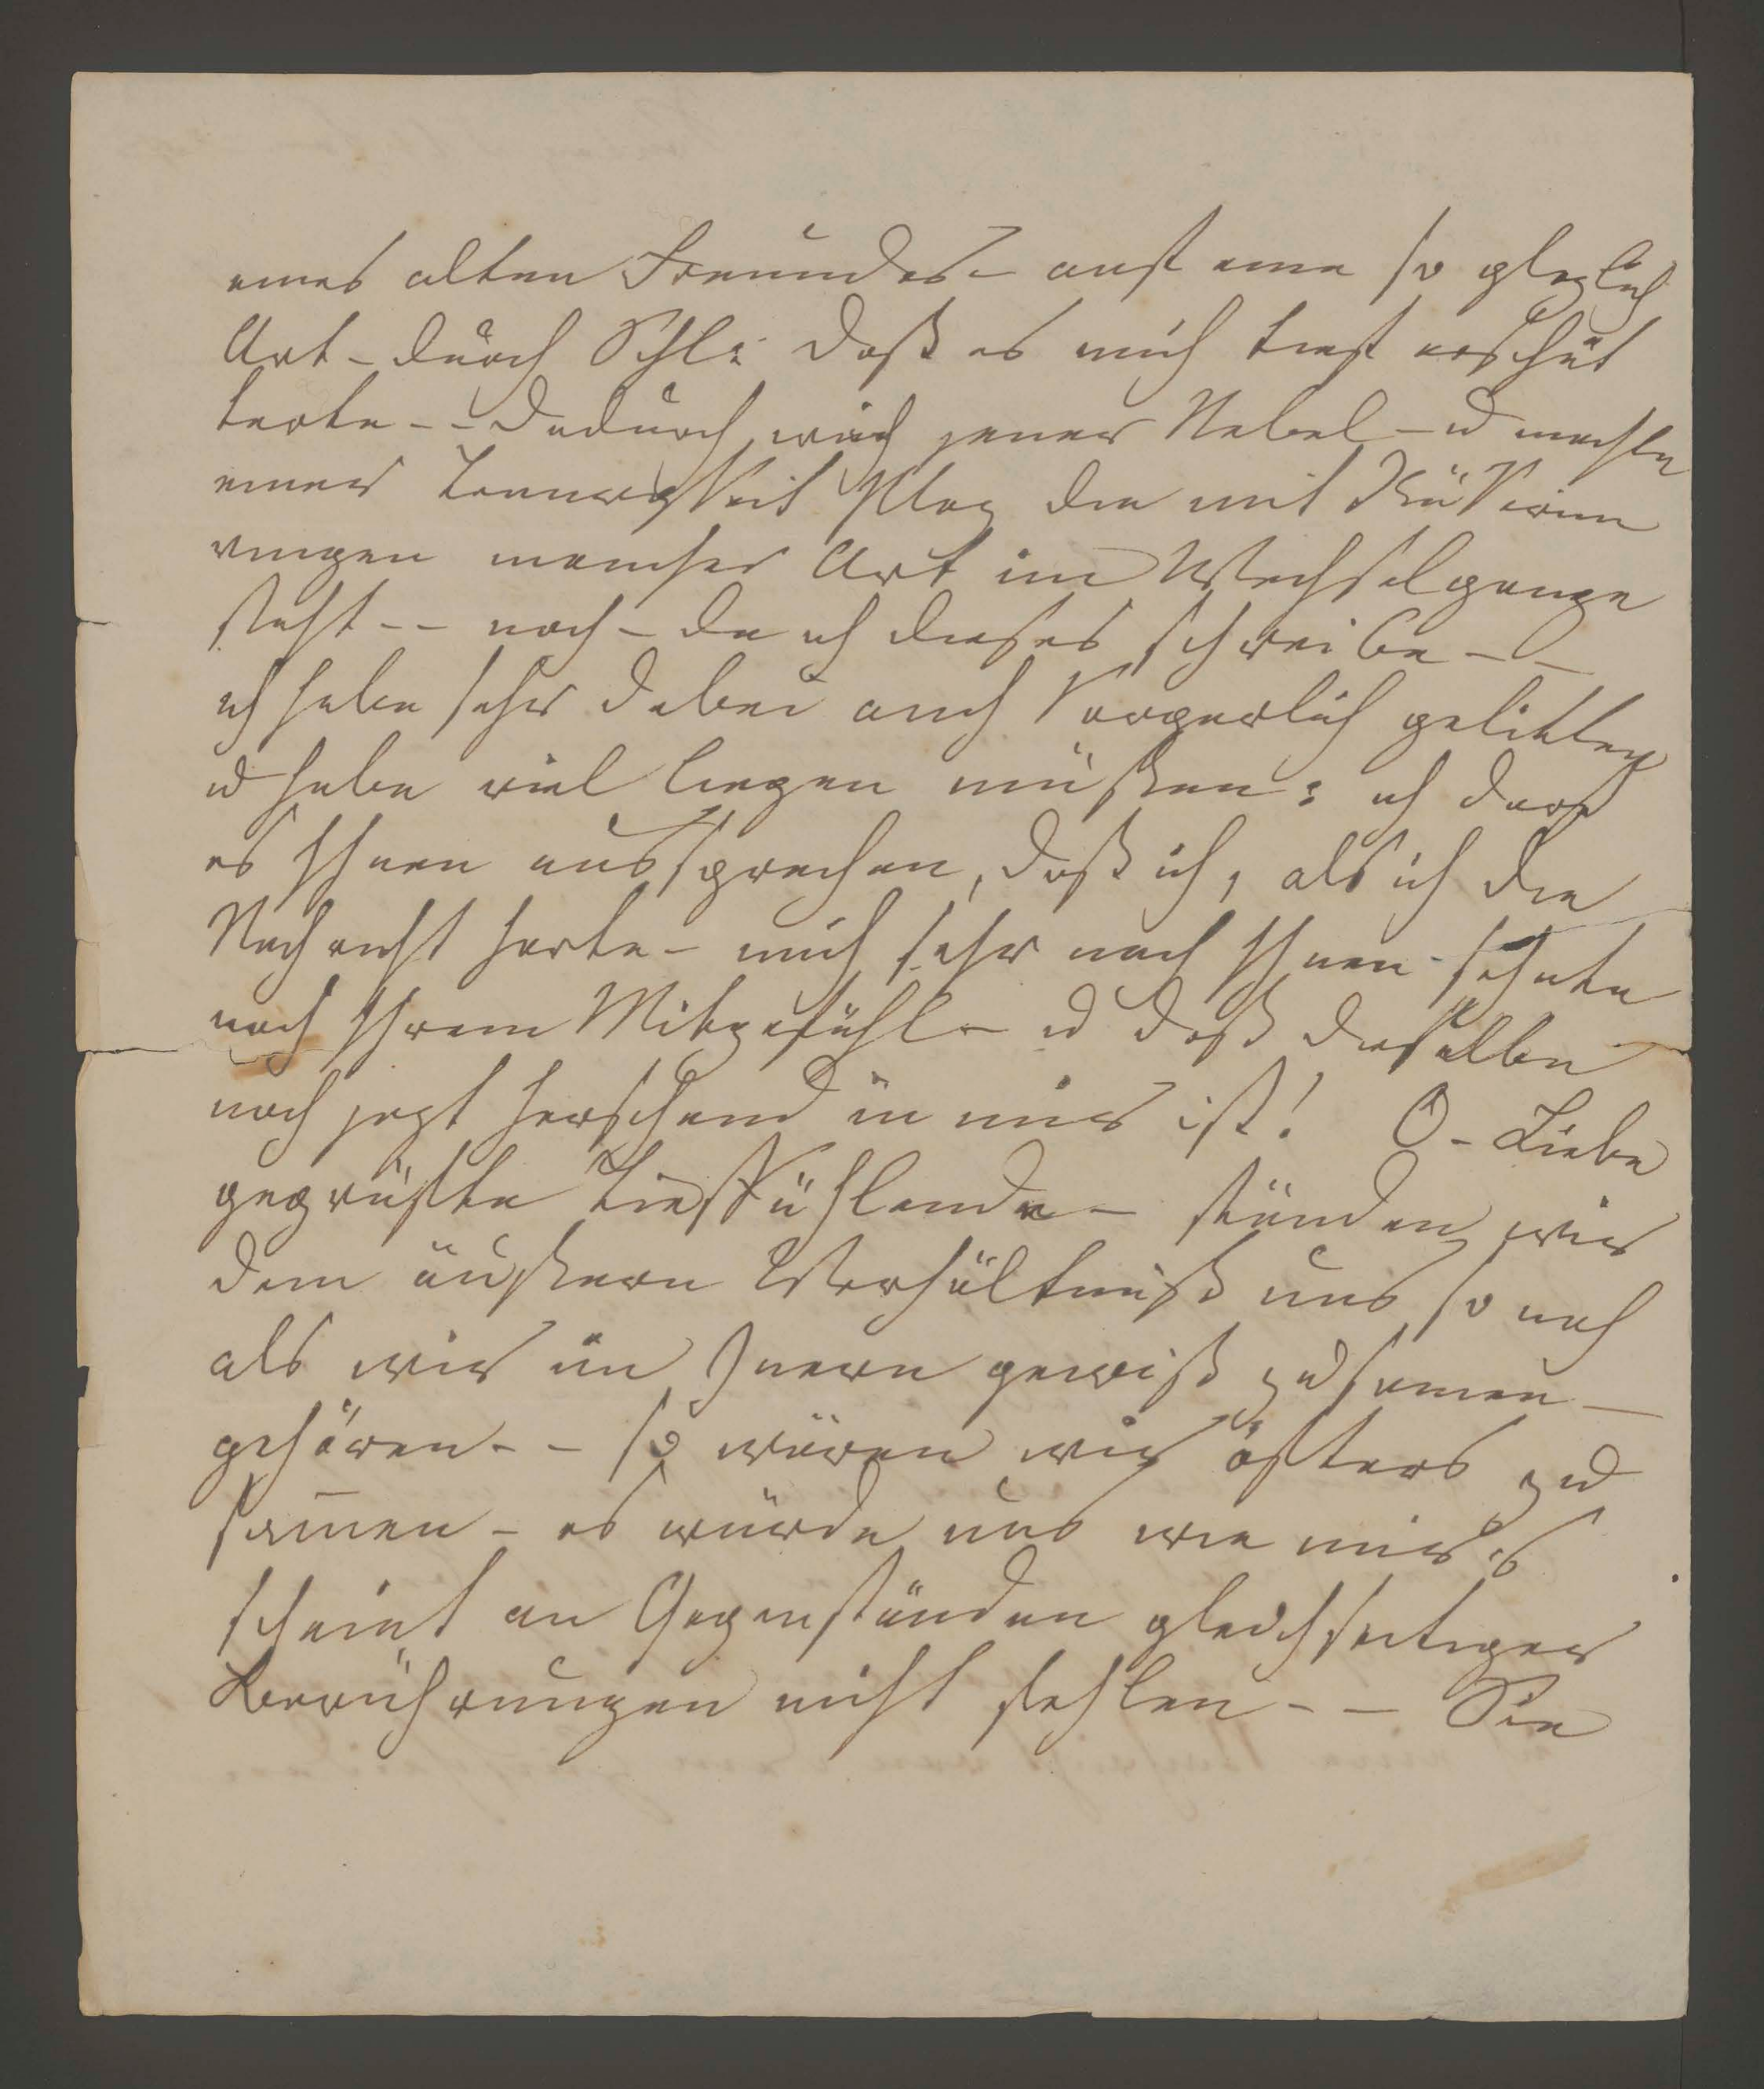 eines alten Freundes – auf eine so plozlich
Art – durch Schl: daß es mich tief erschüt
terte – – dadurch wich jener Nebel – u machte
einer Traurigkeit Plaz die mit Rükerinn
rungen mancher Art im Wechselgange
steht – – noch – da ich dieses schreibe – –
ich habe sehr dabei auch körperlich gelitten
u habe viel liegen müßen: ich darf
es Ihnen aussprechen, daß ich, als ich die
Nachricht horte – mich sehr nach Ihnen sehnte
nach Ihrem Mitgefühl – u daß dasselbe
noch jezt herschend in mir ist! O – Liebe
geprüfte Tieffühlende – ständen wir
dem äußern Verhältniß uns so nah
als wir im Innern gewiß zusamen
gehören – – so wären wir öfters zu
samen – es würde uns wie mirs
scheint an Gegenständen gleichseitiger
Berührungen nicht fehlen – – Sie